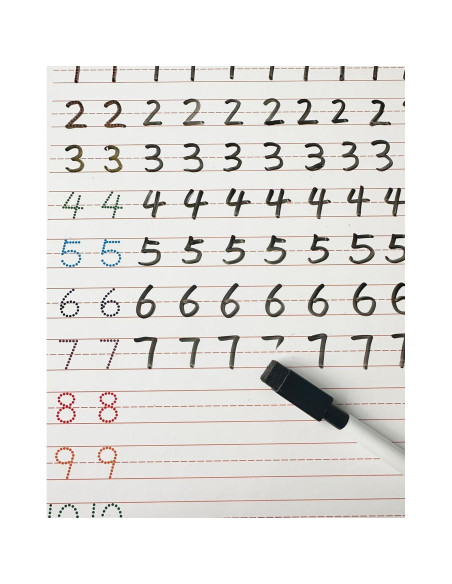 1 1 1 1 1 1 1 1 1
2 2 2 2 2 2 2 2 2
3 3 3 3 3 3 3 3 3
4 4 4 4 4 4 4 4 4
5 5 5 5 5 5 5 5 5
6 6 6 6 6 6 6 6 6
7 7 7 7 7 7 7 7 7
8 8
9 9
10 10